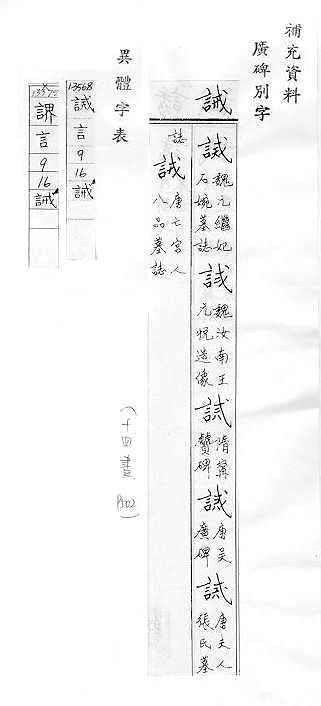 補充資料
廣碑別字
誡
誡 魏元繼妃
石婉墓誌
誡 魏汝南王
元悅造像
誡 隋龍
贊碑
誡 唐吳
廣碑
誡 唐夫人
張氏墓
誌
誡 唐亡宮人
八品墓誌
(十四畫 P302)
異體字表
13568
誡
言
9
16
誡
言
9
16
誡